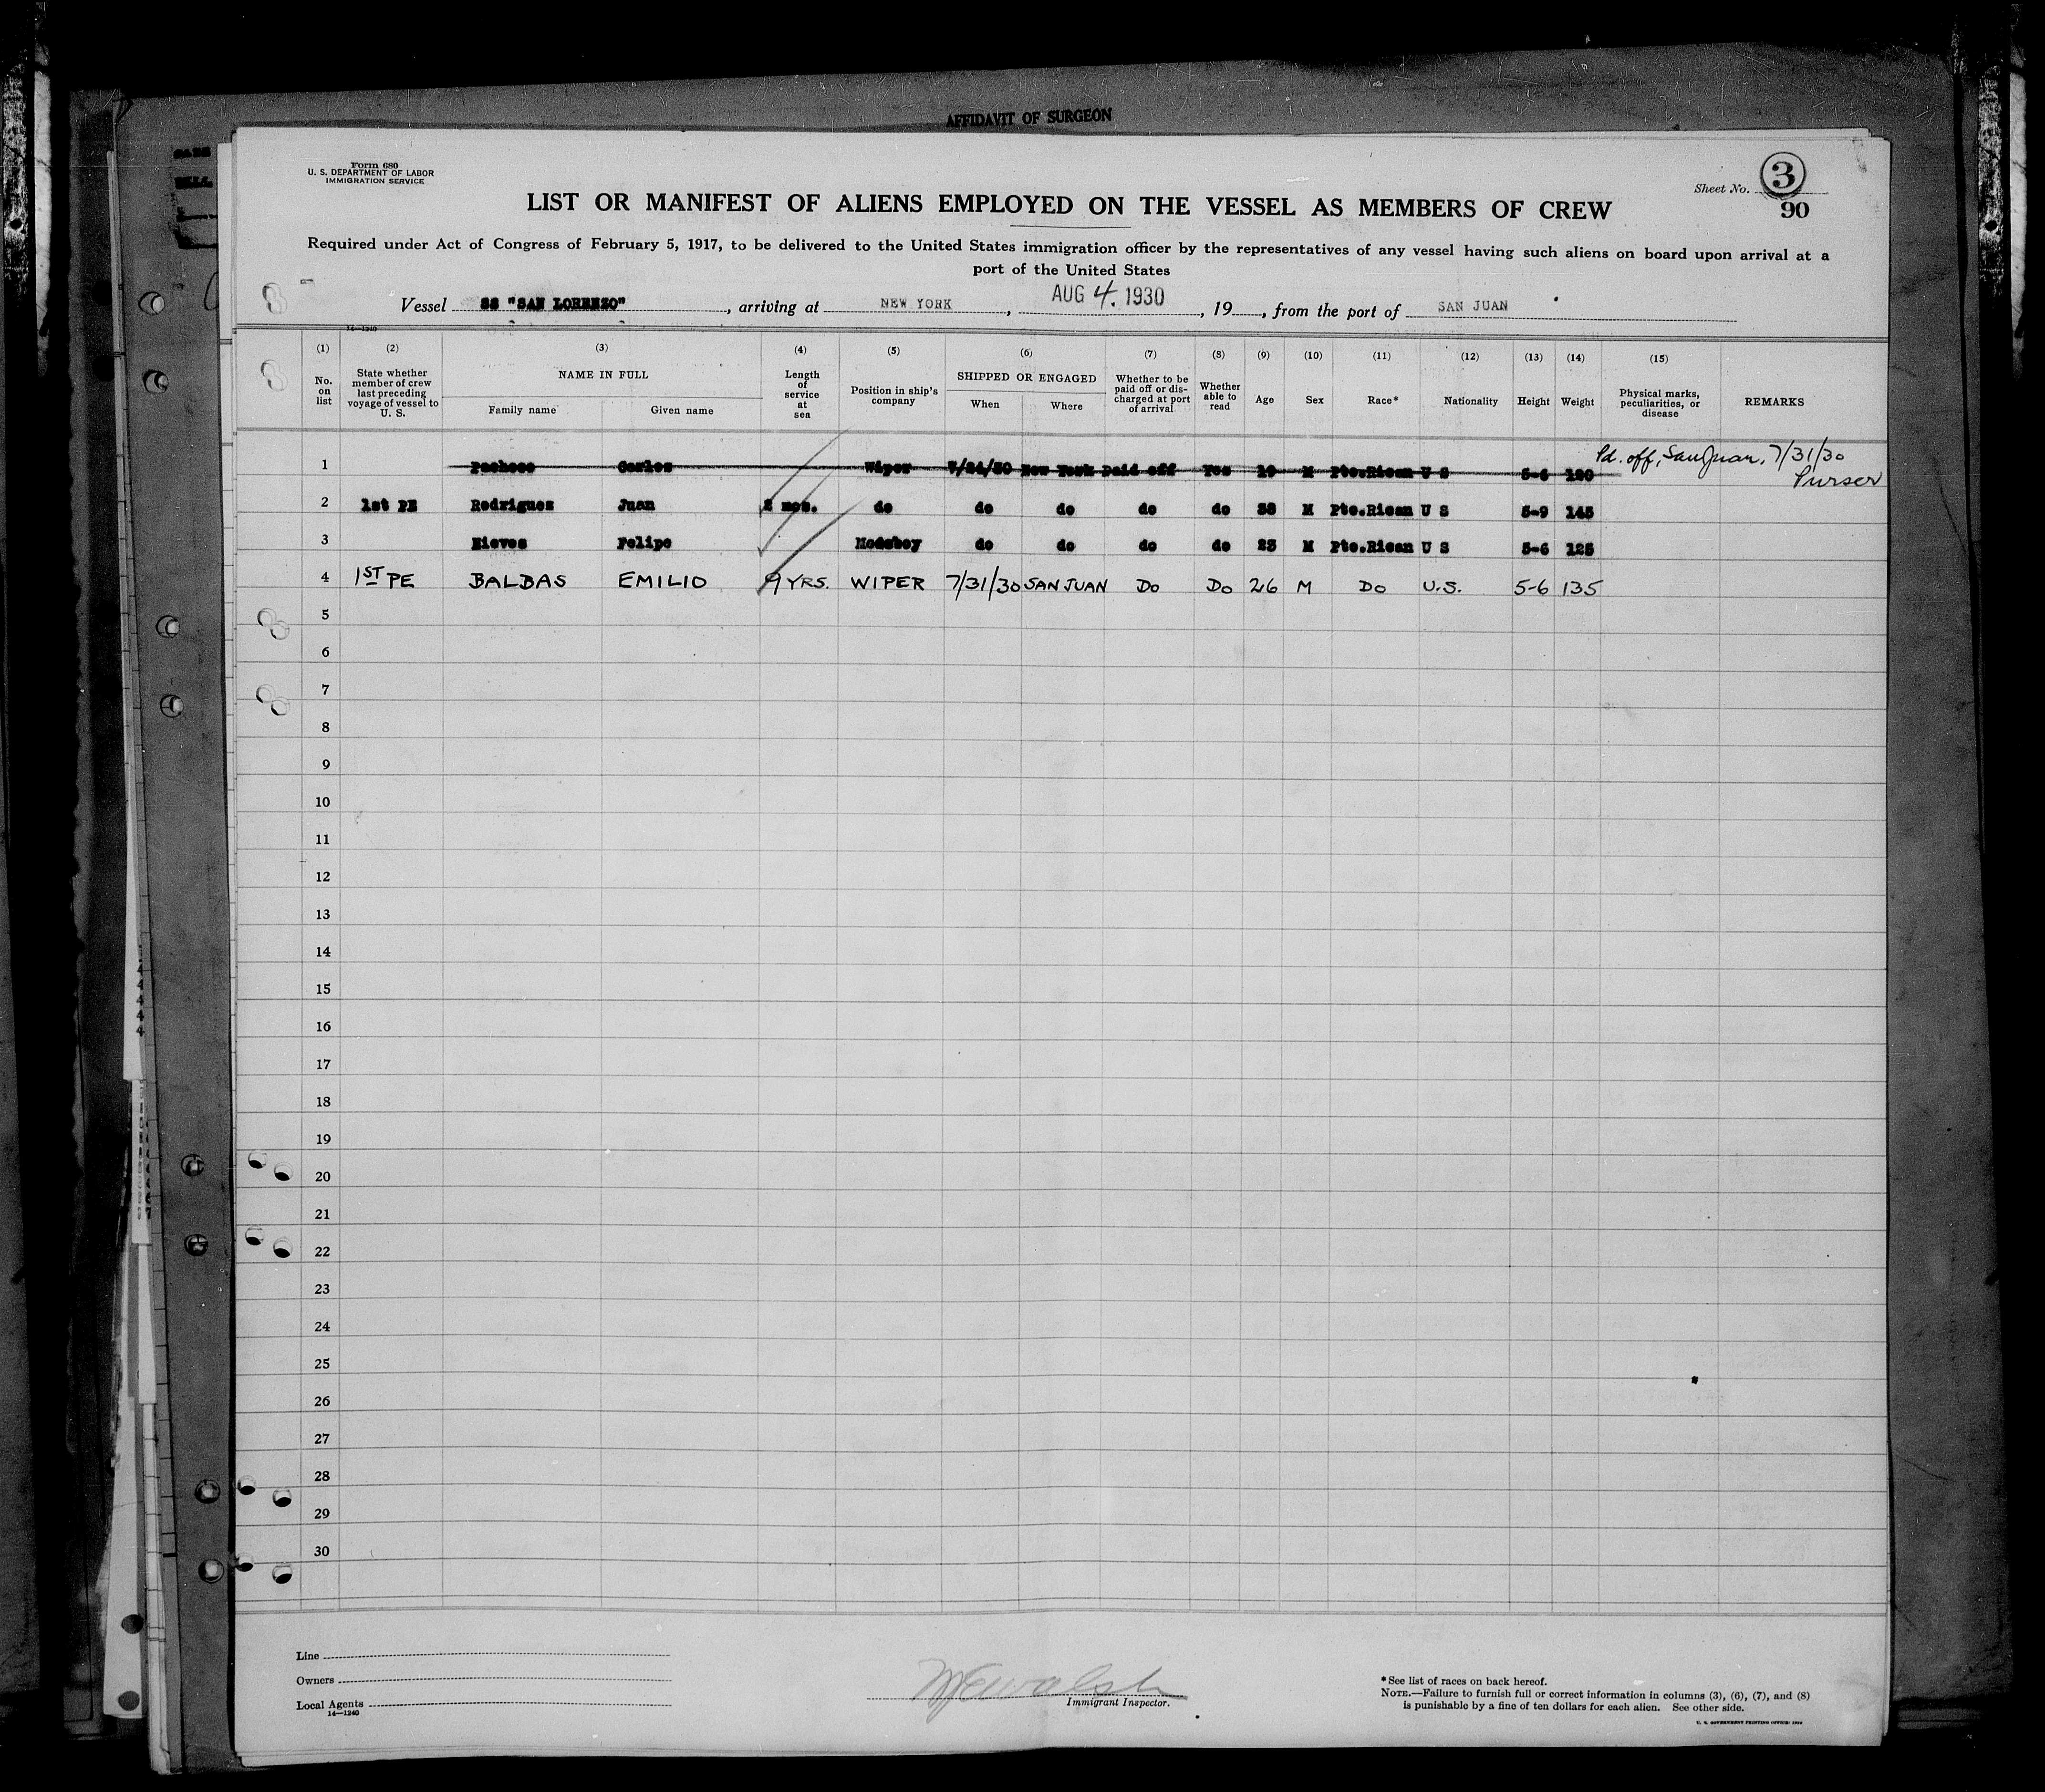 AFFIDAVIT OF SURGEON
Form 680
U. S. DEPARTMENT OF LABOR
IMMIGRATION SERVICE
Sheet No. 3
90
LIST OR MANIFEST OF ALIENS EMPLOYED ON THE VESSEL AS MEMBERS OF CREW
Required under Act of Congress of February 5, 1917, to be delivered to the United States immigration officer by the representatives of any vessel having such aliens on board upon arrival at a
port of the United States
Vessel SS "SAN LORENZO", arriving at NEW YORK, AUG 4. 1930, 19, from the port of SAN JUAN
14-1240
(1) (2) (3) (4) (5) (6) (7) (8) (9) (10) (11) (12) (13) (14) (15)
No. on list
State whether member of crew last preceding voyage of vessel to U. S.
NAME IN FULL
Family name
Given name
Length of service at sea
Position in ship's company
SHIPPED OR ENGAGED
When
Where
Whether to be paid off or discharged at port of arrival
Whether able to read
Age
Sex
Race*
Nationality
Height
Weight
Physical marks, peculiarities, or disease
REMARKS
1 Pacheco Carlos Wiper 7/24/30 New York Paid off Yes 19 M Pto.Rican U S 5-6 120 Pd. off, San Juan, 7/31/30
Purser
2 1st PE Rodriguez Juan 2 mos. do do do do do 38 M Pto.Rican U S 5-9 145
3 Nieves Felipe Messboy do do do do 23 M Pto.Rican U S 5-6 125
4 1ST PE BALBAS EMILIO 9 YRS. WIPER 7/31/30 SAN JUAN DO DO 26 M DO U.S. 5-6 135
5
6
7
8
9
10
11
12
13
14
15
16
17
18
19
20
21
22
23
24
25
26
27
28
29
30
Line
Owners
Local Agents
14-1240
Immigrant Inspector.
*See list of races on back hereof.
NOTE.—Failure to furnish full or correct information in columns (3), (6), (7), and (8)
is punishable by a fine of ten dollars for each alien. See other side.